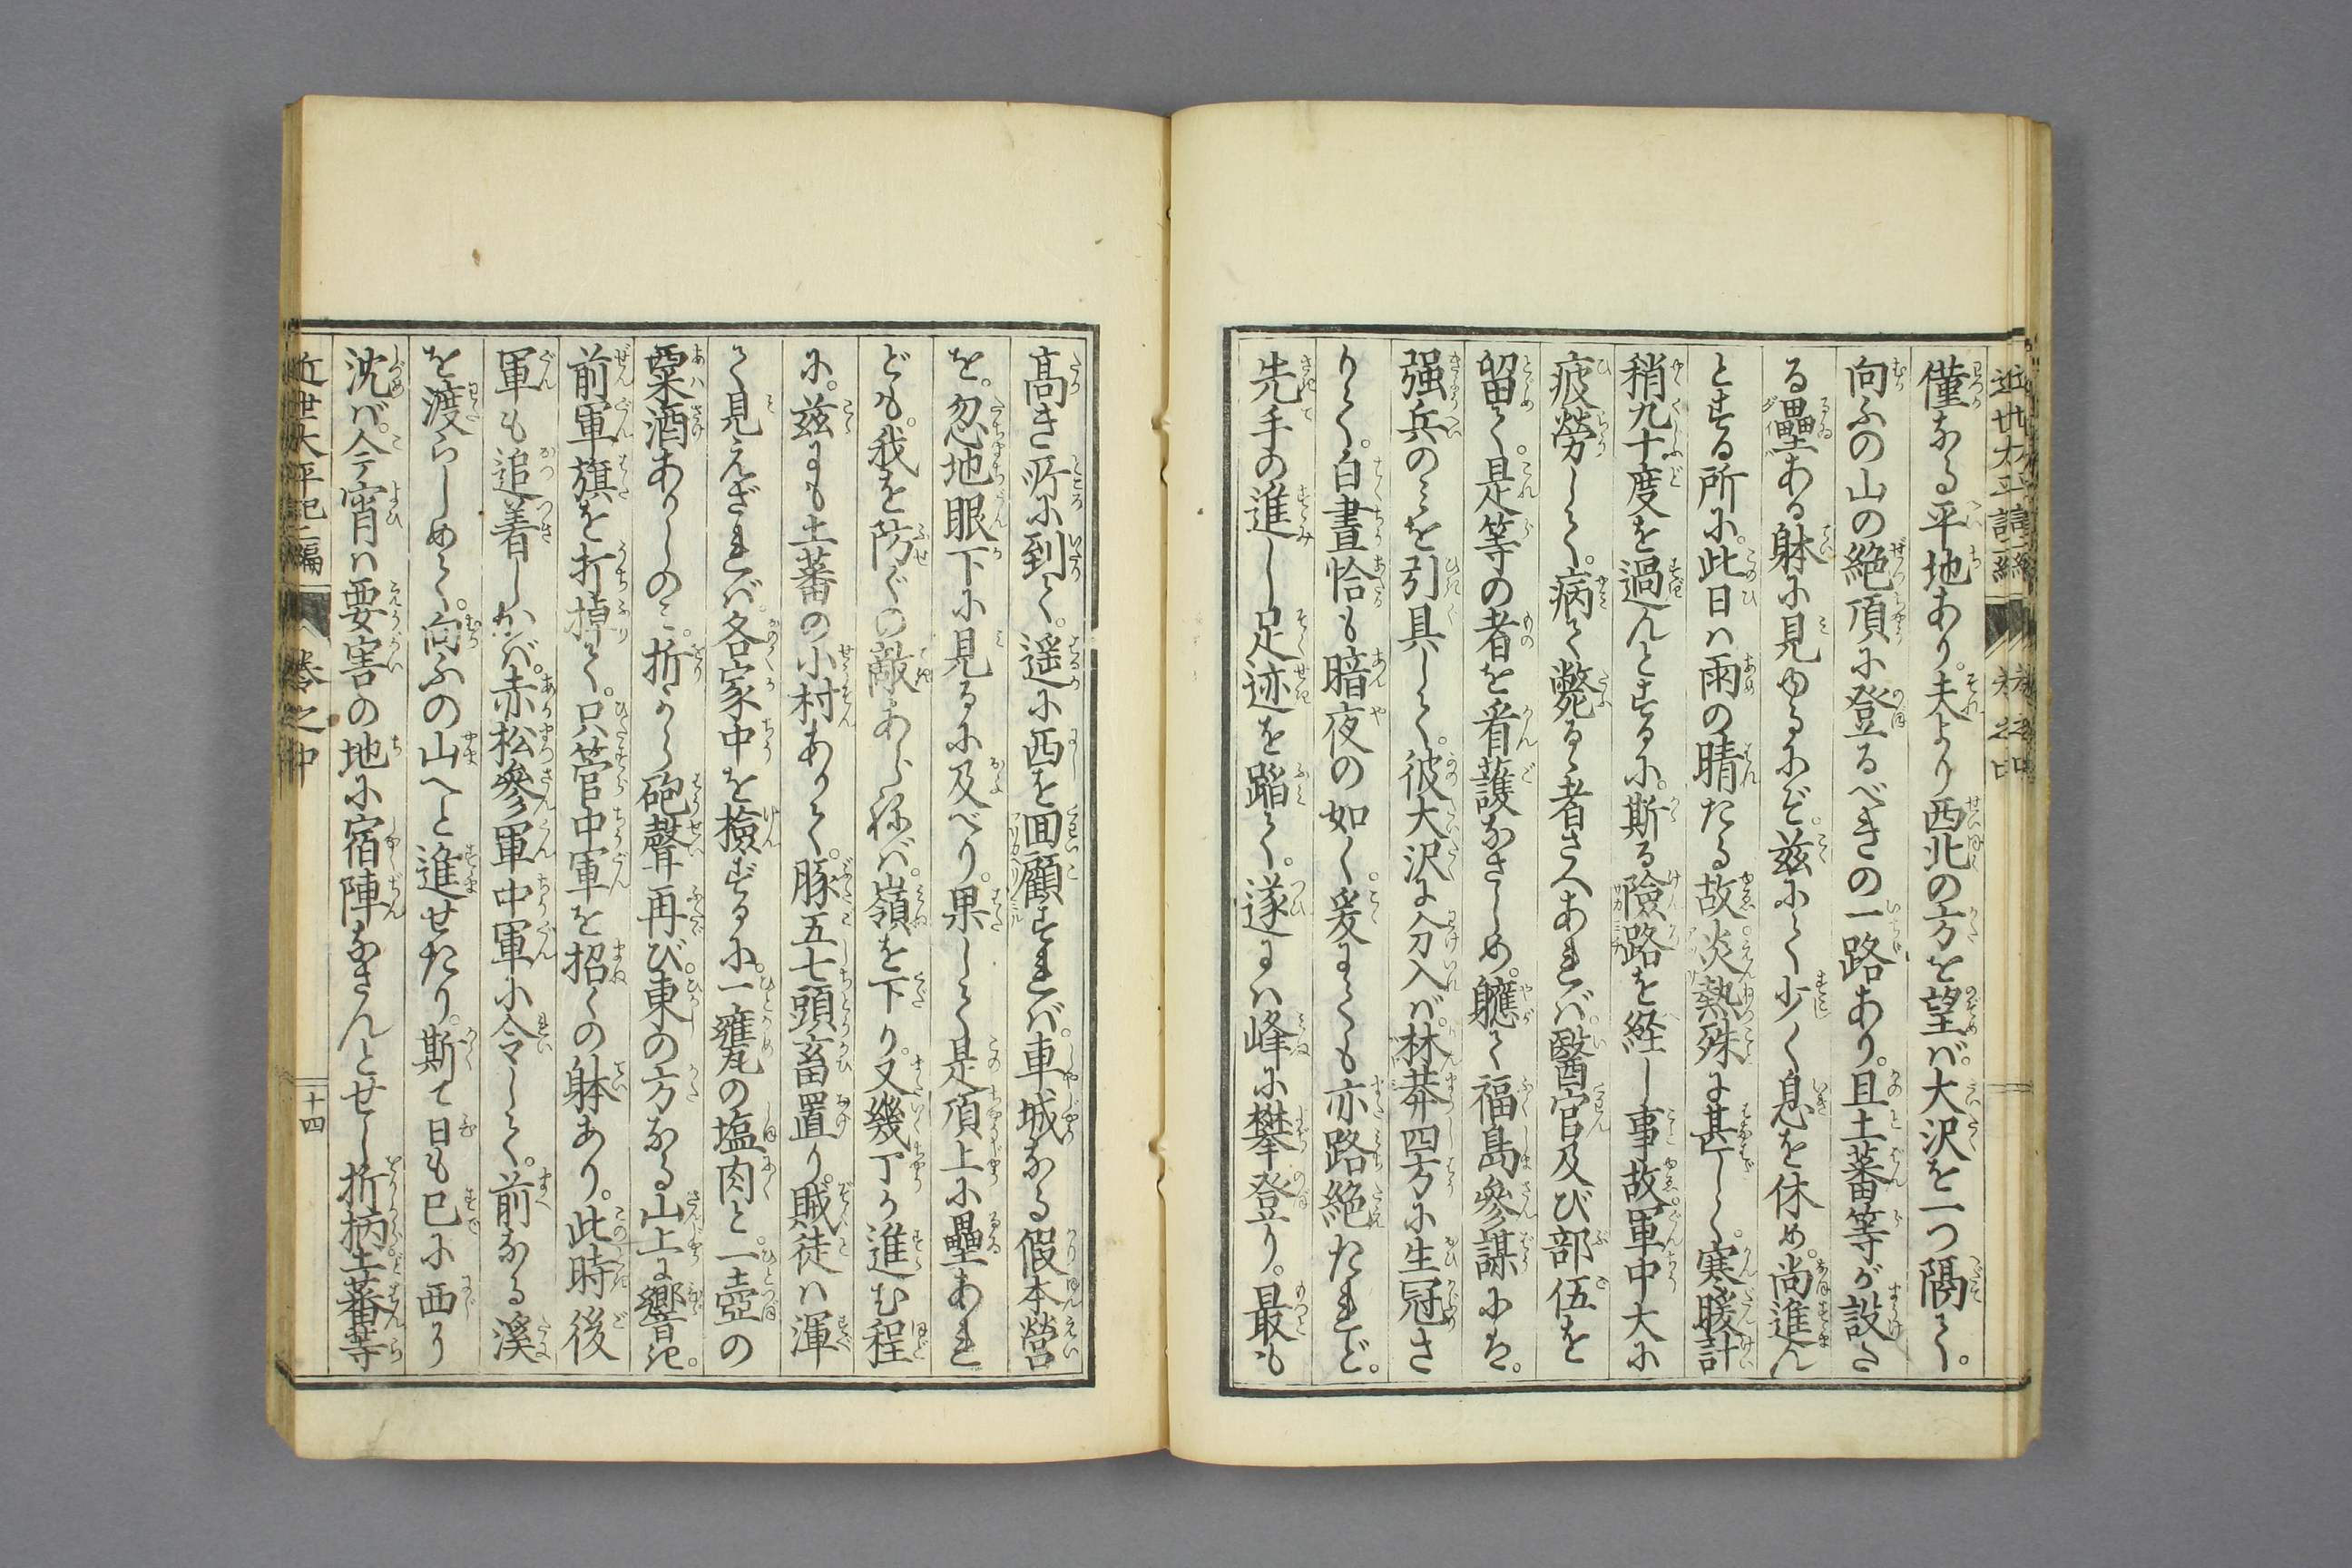 僅なる平地あり。夫より西北の方を望めバ。大沢を一つ隔て。
向ふの山の絶頂に登るべきの一路あり。且土蕃等が設た
る壘ある躰に見ゆるにぞ。茲にて少く息を休め。尚進ん
とする所に。此日ハ雨の晴たる故。炎熱殊に甚しく。寒暖計
稍九十度を過んとするに。斯る險路を経し事故。軍中大に
疲勞して。病て斃るゝ者さへあれバ。醫官及び部伍を
留て。是等の者を看護なさしめ。軈て福島參謀にハ。
强兵のミを引具して。彼大沢に分入バ。林莽四方に生冠さ
りて。白晝恰も暗夜の如く。爰にても亦路絶たれど。
先手の進ミし足迹を蹈て。遂にハ峰に攀登り。最も
高き所に到て。遥に西を囬顧すれバ。車城なる假本營
を。忽地眼下に見るに及べり。果して是頂上に壘あれ
ども。我を防ぐの敵あらねバ。嶺を下り。又幾丁か進む程
に。茲にも土蕃の小村ありて。豚五七頭畜置り。賊徒ハ渾
て見えざれバ。各家中を檢ずるに。一甕の塩肉と。一壺の
粟酒ありしのミ。折から砲聲再び。東の方なる山上に響き。
前軍旗を打掉て。只管中軍を招くの躰あり。此時後
軍も追着しかバ。赤松參軍中軍に令して。前なる溪
を渡らしめて。向ふの山へと進せたり。斯て日も已に西に
沈バ。今宵ハ要害の地に宿陣なさんとせし折柄。土蕃等
近世太平記二編 卷之中 二十四